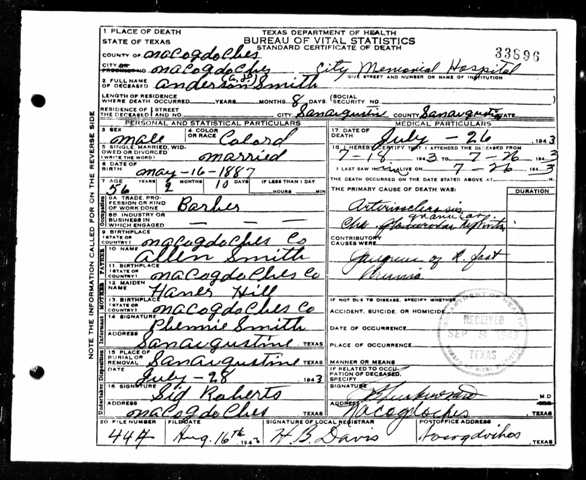 1 PLACE OF DEATH
STATE OF TEXAS
TEXAS DEPARTMENT OF HEALTH
BUREAU OF VITAL STATISTICS
STANDARD CERTIFICATE OF DEATH
33596
COUNTY OF Nacogdoches
CITY OR PRECINCT NO. Nacogdoches City Memorial Hospital
GIVE STREET AND NUMBER OR NAME OF INSTITUTION
2 FULL NAME OF DECEASED Anderson Smith
LENGTH OF RESIDENCE WHERE DEATH OCCURRED YEARS MONTHS 8 DAYS (SOCIAL SECURITY NO
RESIDENCE OF THE DECEASED STREET AND NO. CITY San augustine COUNTY San augustine STATE
PERSONAL AND STATISTICAL PARTICULARS
MEDICAL PARTICULARS
3 SEX male
4 COLOR OR RACE Colord
17 DATE OF DEATH July - 26 1943
5 SINGLE, MARRIED, WIDOWED OR DIVORCED (WRITE THE WORD) married
18 I HEREBY CERTIFY THAT I ATTENDED THE DECEASED FROM
7-18 1943 TO 7-26 1943
6 DATE OF BIRTH may-16-1887
I LAST SAW ALIVE ON 7-26 1943
THE DEATH OCCURRED ON THE DATE STATED ABOVE AT M.
7 AGE YEARS MONTHS DAYS IF LESS THAN 1 DAY
56 2 10 HOURS MIN
THE PRIMARY CAUSE OF DEATH WAS: DURATION
8A TRADE, PROFESSION OR KIND OF WORK DONE Barber
8B INDUSTRY OR BUSINESS IN WHICH ENGAGED
CONTRIBUTORY CAUSES WERE:
9 BIRTHPLACE (STATE OR COUNTRY) nacogdoches Co
10 NAME Allen Smith
Gangrene of R. foot
11 BIRTHPLACE (STATE OR COUNTRY) nacogdoches Co
12 MAIDEN NAME Hill
IF NOT DUE TO DISEASE, SPECIFY WHETHER:
ACCIDENT, SUICIDE, OR HOMICIDE
13 BIRTHPLACE (STATE OR COUNTRY) nacogdoches Co
DATE OF OCCURRENCE
14 SIGNATURE Smith
PLACE OF OCCURRENCE
ADDRESS San augustine TEXAS
RECEIVED
TEXAS
15 PLACE OF BURIAL OR REMOVAL San augustine TEXAS
MANNER OR MEANS
DATE July-28 1943
IF RELATED TO OCCUPATION OF DECEASED, SPECIFY
16 SIGNATURE Sid Roberts
SIGNATURE M.D
ADDRESS nacogdoches TEXAS
ADDRESS Nacogdoches TEXAS
20 FILE NUMBER FILE DATE SIGNATURE OF LOCAL REGISTRAR POSTOFFICE ADDRESS
444 Aug. 16th 1943 H. B. Davis TEXAS
NOTE THE INFORMATION CALLED FOR ON THE REVERSE SIDE
FATHER
MOTHER
Informant
Undertaker